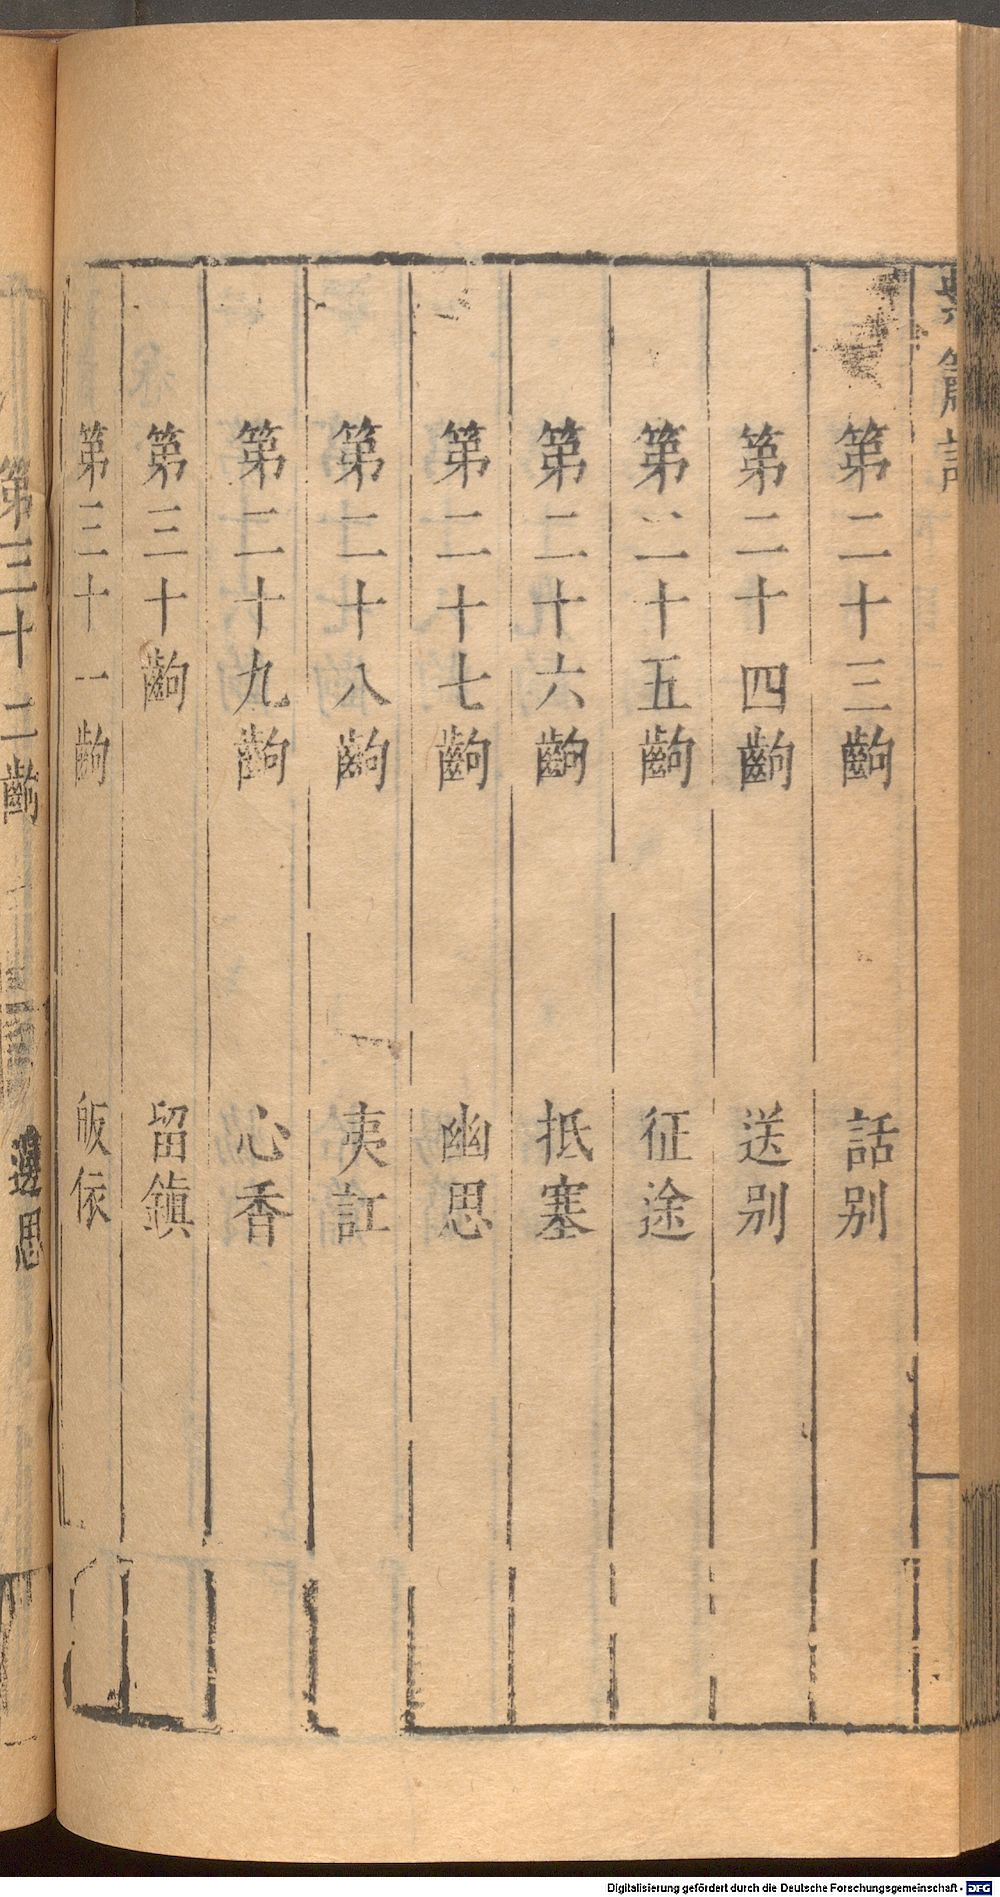 第二十三齣 話别
第二十四齣 送别
第二十五齣 征途
第二十六齣 抵塞
第二十七齣 幽思
第二十八齣 夷訌
第二十九齣 心香
第三十齣 留鎮
第三十一齣 皈依
第三十二齣 邊思
Digitalisierung gefördert durch die Deutsche Forschungsgemeinschaft - DFG